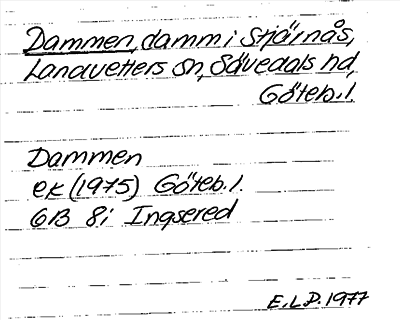 Dammen, damm i Stjärnås,
Landvetters sn, Sävedals hd,
Göteb. l.
Dammen
ek (1975) Göteb. l.
6B 8i Ingsered
E.L.D. 1977